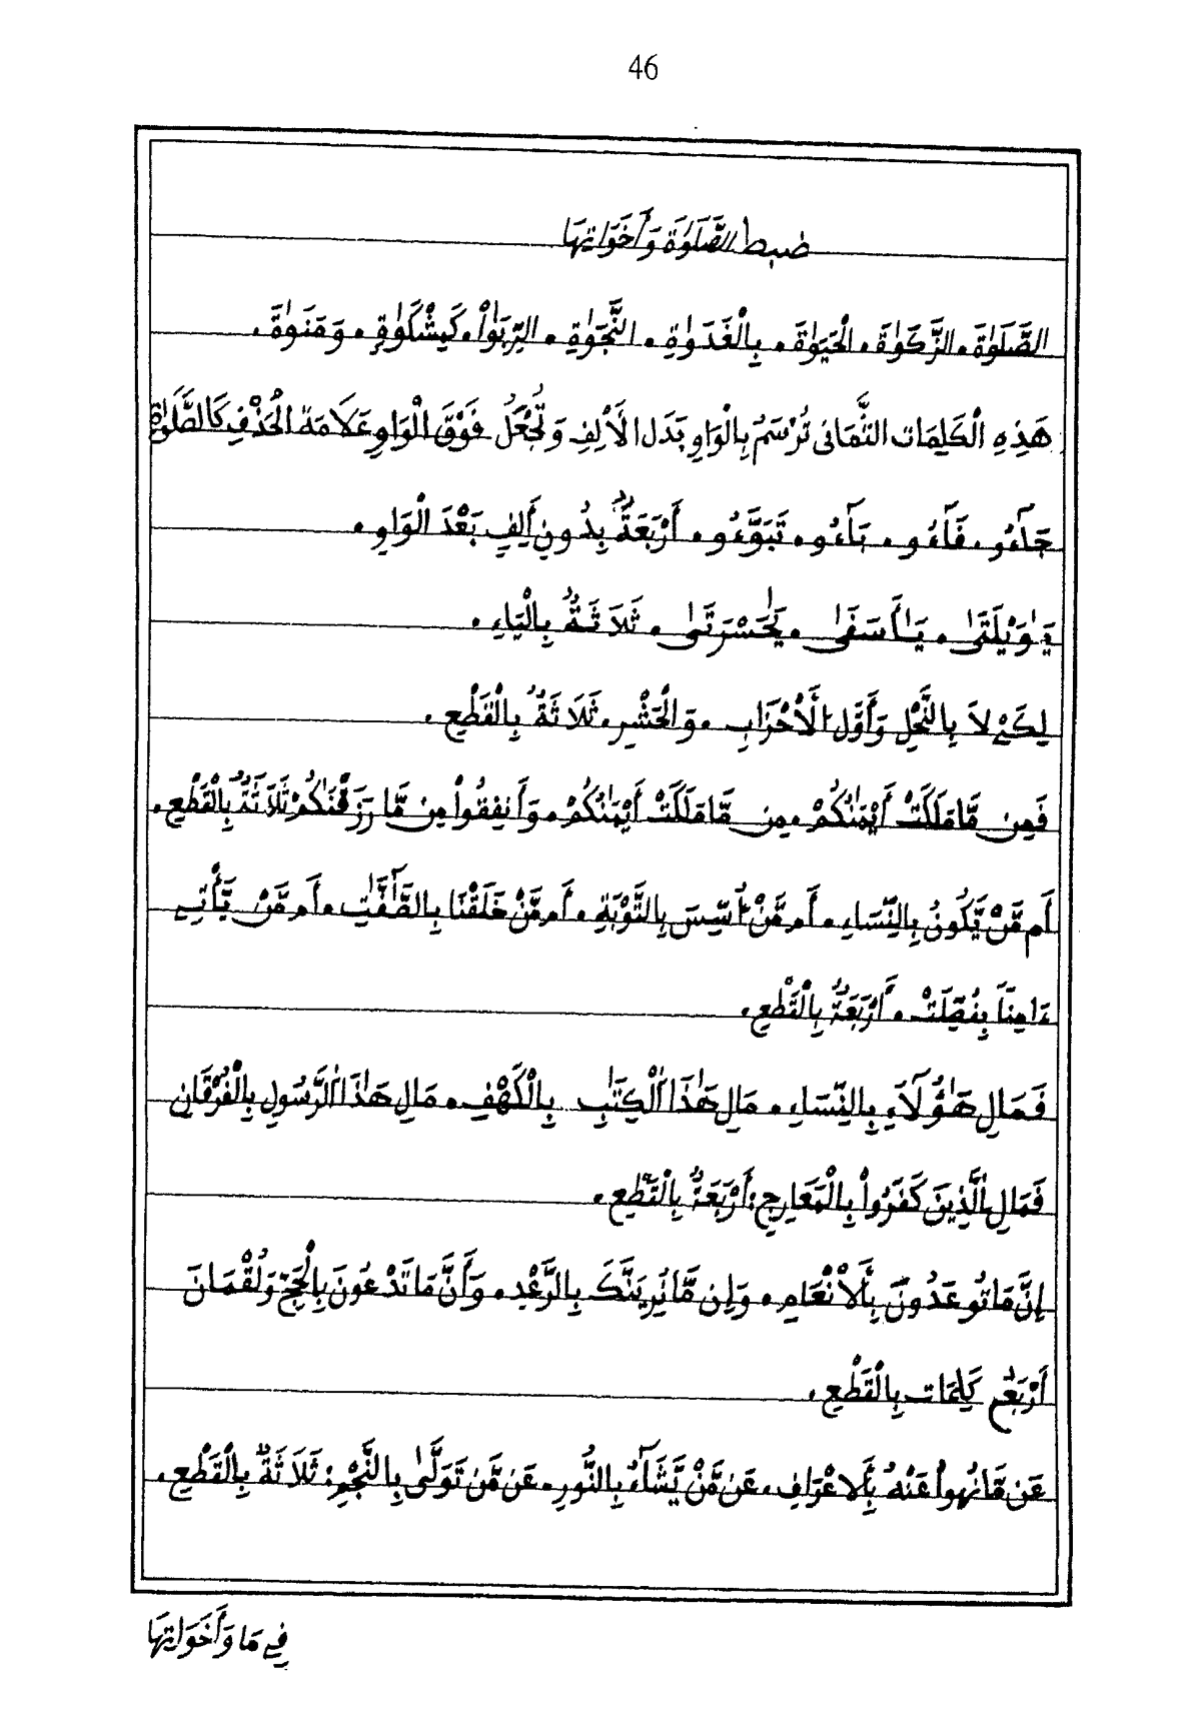 46
ضبط الصَّلَوٰةَ وَأَخَوَاتِهَا
الصَّلَوٰةَ. الزَّكَوٰةَ. الْحَيَوٰةَ. بِالْغَدَوٰةِ. النَّجَوٰةِ. الرِّبَوٰاْ. كَمِشْكَوٰةٍ. وَمَنَوٰةَ.
هَذِهِ الْكَلِمَات الثَّمَانِى تُرْسَمُ بِالْوَاوِ بَدَل الْأَلِفِ وَتُجْعَلُ فَوْقَ الْوَاوِ عَلَامَةُ الْحَذْفِ كَالصَّلَوٰةِ
جَآءُو. فَآءُو. بَآءُو. تَبَوَّءُو. أَرْبَعَةٌ بِدُونِ أَلِفٍ بَعْدَ الْوَاوِ.
يَٰوَيْلَتَىٰ. يَٰأَسَفَىٰ. يَٰحَسْرَتَىٰ. ثَلَاثَةٌ بِالْيَاءِ.
لِكَےْ لَا بِالنَّحْلِ وَأَوَّل اَلْأَحْزَابِ. وَالْحَشْرِ. ثَلَاثَةٌ بِالْقَطْعِ.
فَمِن مَّا مَلَكَتْ أَيْمَٰنُكُمْ. مِن مَّا مَلَكَتْ أَيْمَٰنُكُمْ. وَأَنفِقُواْ مِن مَّا رَزَقْنَٰكُمْ ثَلَاثَةٌ بِالْقَطْعِ.
أَم مَّنْ يَّكُونُ بِالنِّسَاءِ. أَم مَّنْ اُسِّسَ بِالتَّوْبَةِ. أَم مَّنْ خَلَقْنَا بِالصَّآفَّٰتِ. أَم مَّنْ يَّأْتِے
ءَامِنًا بِفُصِّلَتْ. أَرْبَعَةٌ بِالْقَطْعِ.
فَمَالِ هَٰؤُلَآءِ بِالنِّسَاءِ. مَالِ هَٰذَا اَلْكِتَٰبِ بِالْكَهْفِ. مَالِ هَٰذَا اَلرَّسُولِ بِالْفُرْقَانِ
فَمَالِ اِلَّذِينَ كَفَرُواْ بِالْمَعَارِجِ: أَرْبَعَةٌ بِالْقَطْعِ.
إِنَّ مَا تُوعَدُونَ بِالْأَنْعَامِ. وَإِن مَّا نُرِيَنَّكَ بِالرَّعْدِ. وَأَنَّ مَا تَدْعُونَ بِالْحَجِّ وَلُقْمَانَ
أَرْبَعُ كَلِمَات بِالْقَطْعِ.
عَن مَّا نُهُواْ عَنْهُ بِالَاعْرَافِ. عَن مَّنْ يَّشَآءُ بِالنُّورِ. عَن مَّن تَوَلَّىٰ بِالنَّجْمِ: ثَلَاثَةٌ بِالْقَطْعِ.
فِے مَا وَأَخَوَاتِهَا